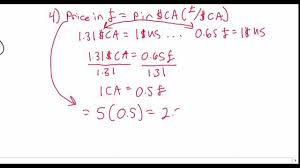 4) Price in £ = P in $CA (£/$CA)
1.31 $CA = 1 $US ... 0.65 £ = 1 $US
1.31 $CA = 0.65 £
1.31 1.31
1 CA = 0.5 £
= 5 (0.5) = 2.